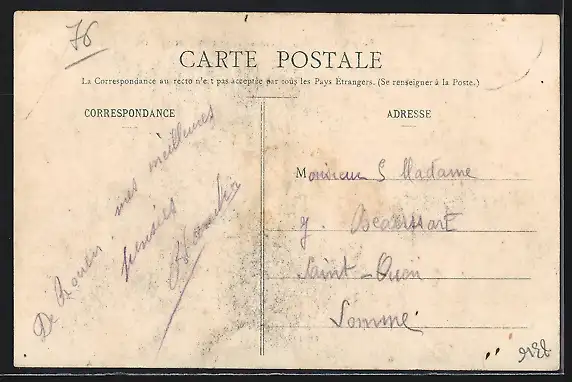 76
CARTE POSTALE
La Correspondance au recto n'est pas acceptée par tous les Pays Étrangers. (Se renseigner à la Poste.)
CORRESPONDANCE
De Rouen mes meilleures
pensées
Blanche
ADRESSE
Monsieur & Madame
J. Beaussart
Saint-Ouen
Somme